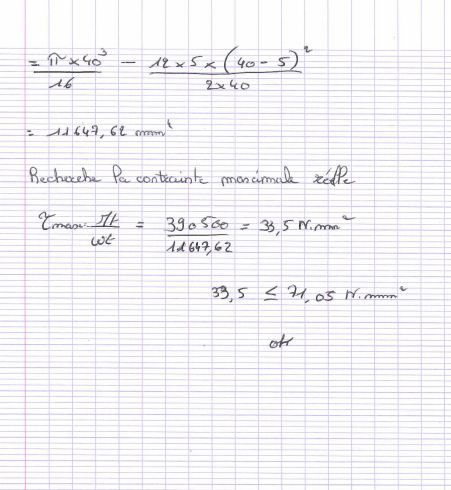 = π × 40³ / 16 − 12 × 5 × (40 − 5)² / 2 × 40
= 11647,62 mm²
Recherche la contrainte maximale réelle
τmax = Mt / Wt = 390500 / 11647,62 = 33,5 N.mm²
33,5 ≤ 71,05 N.mm²
ok